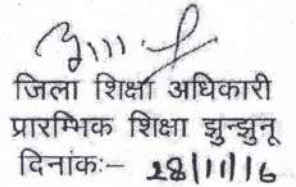 जिला शिक्षा अधिकारी
प्रारम्भिक शिक्षा झुन्झुनू
दिनांक:– 28/11/16